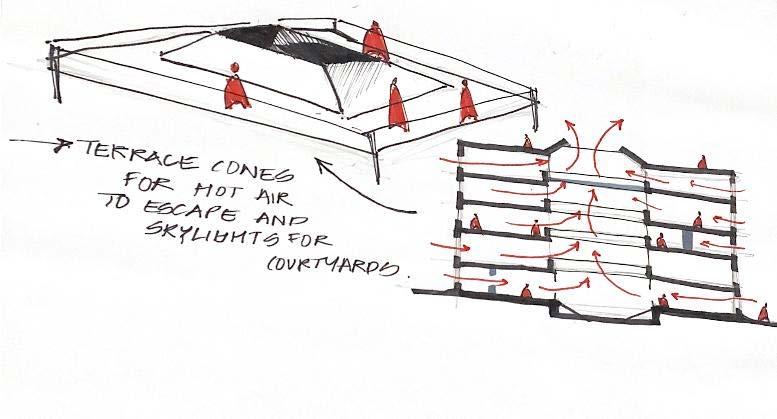 TERRACE CONES
FOR HOT AIR
TO ESCAPE AND
SKYLIGHTS FOR
COURTYARDS.